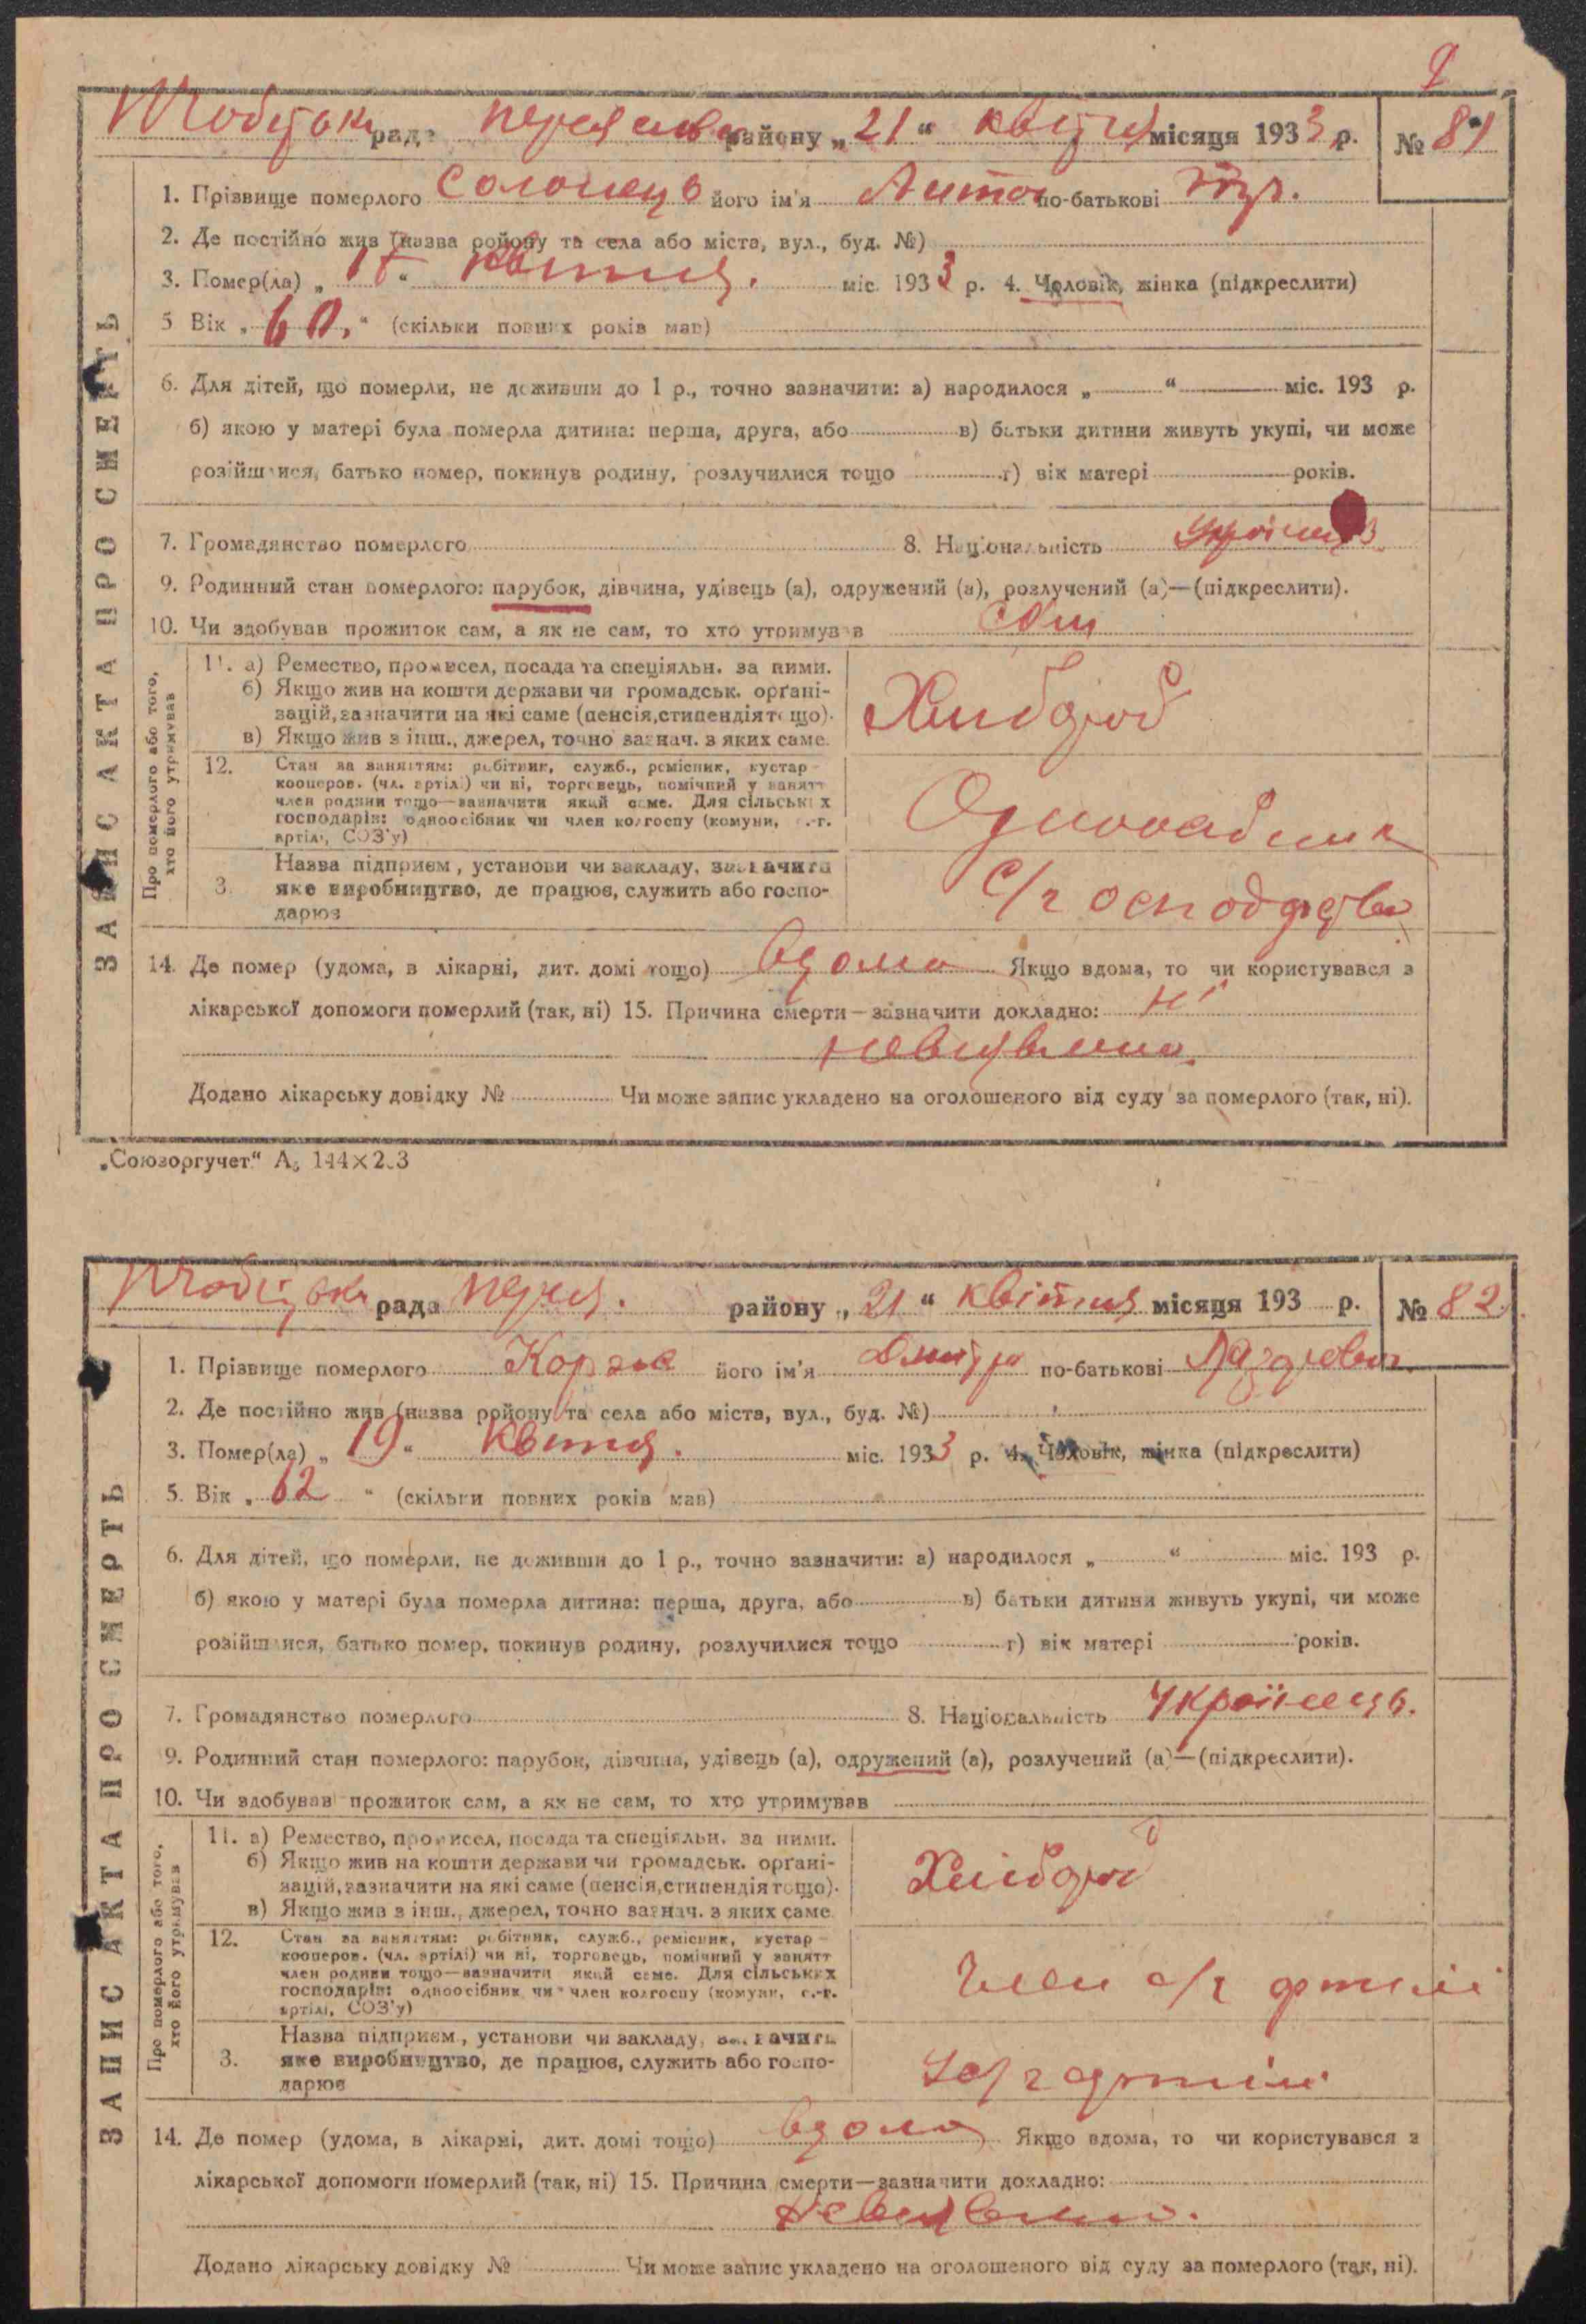 рада району „ 21 “ квітня місяця 193 3 р. № 81
1. Прізвище померлого його ім'я Антон по-батькові
2. Де постійно жив (назва району та села або міста, вул., буд. №)
3. Помер(ла) „ “ квітня. міс. 193 3 р. 4. Чоловік, жінка (підкреслити)
5 Вік „ 60. “ (скільки повних років мав)
6. Для дітей, що померли, не доживши до 1 р., точно зазначити: а) народилося „ “ міс. 193 р.
б) якою у матері була померла дитина: перша, друга, або в) батьки дитини живуть укупі, чи може
розійшлися, батько помер, покинув родину, розлучилися тощо г) вік матері років.
7. Громадянство померлого 8. Національність Українець
9. Родинний стан померлого: парубок, дівчина, удівець (а), одружений (а), розлучений (а)—(підкреслити).
10. Чи здобував прожиток сам, а як не сам, то хто утримував сам
ЗАПИС АКТА ПРО СМЕРТЬ
Про померлого або того, хто його утримував
11. а) Ремество, промисел, посада та спеціяльн. за ними.
б) Якщо жив на кошти держави чи громадськ. орґані-
зацій, зазначити на які саме (пенсія, стипендія тощо).
в) Якщо жив з інш., джерел, точно зазнач. з яких саме.
Хлібороб
12. Стан за заняттям: робітник, служб., ремісник, кустар
кооперов. (чл. артілі) чи ні, торговець, помічний у занятт
член родини тощо—зазначити який саме. Для сільських
господарів: одноосібник чи член колгоспу (комуни, с.-г.
артілі, СОЗ'у)
3. Назва підприєм, установи чи закладу, зазначити
яке виробництво, де працює, служить або госпо-
дарює
14. Де помер (удома, в лікарні, дит. домі тощо) вдома Якщо вдома, то чи користувався з
лікарської допомоги померлий (так, ні) 15. Причина смерти—зазначити докладно: ні
невиявлено.
Додано лікарську довідку № Чи може запис укладено на оголошеного від суду за померлого (так, ні).
„Союзоргучет“
рада району „ 21 “ квітня місяця 193 р. № 82.
1. Прізвище померлого Корж його ім'я Дмитро по-батькові
2. Де постійно жив (назва району та села або міста, вул., буд. №)
3. Помер(ла) „ 19 “ квітня. міс. 193 3 р. 4. Чоловік, жінка (підкреслити)
5. Вік „ 62 “ (скільки повних років мав)
6. Для дітей, що померли, не доживши до 1 р., точно зазначити: а) народилося „ “ міс. 193 р.
б) якою у матері була померла дитина: перша, друга, або в) батьки дитини живуть укупі, чи може
розійшлися, батько помер, покинув родину, розлучилися тощо г) вік матері років.
7. Громадянство померлого 8. Національність Українець.
9. Родинний стан померлого: парубок, дівчина, удівець (а), одружений (а), розлучений (а)—(підкреслити).
10. Чи здобував прожиток сам, а як не сам, то хто утримував
ЗАПИС АКТА ПРО СМЕРТЬ
Про померлого або того, хто його утримував
11. а) Ремество, промисел, посада та спеціяльн. за ними.
б) Якщо жив на кошти держави чи громадськ. орґані-
зацій, зазначити на які саме (пенсія, стипендія тощо).
в) Якщо жив з інш., джерел, точно зазнач. з яких саме
Хлібороб
12. Стан за заняттям: робітник, служб., ремісник, кустар
кооперов. (чл. артілі) чи ні, торговець, помічний у занятт
член родини тощо—зазначити який саме. Для сільських
господарів: одноосібник чи член колгоспу (комуни, с.-г.
артілі, СОЗ'у)
Член с/г артілі
3. Назва підприєм, установи чи закладу, зазначить
яке виробництво, де працює, служить або госпо-
дарює
У с/г артілі
14. Де помер (удома, в лікарні, дит. домі тощо) вдома Якщо вдома, то чи користувався з
лікарської допомоги померлий (так, ні) 15. Причина смерти—зазначити докладно:
невиявлено.
Додано лікарську довідку № Чи може запис укладено на оголошеного від суду за померлого (так, ні).